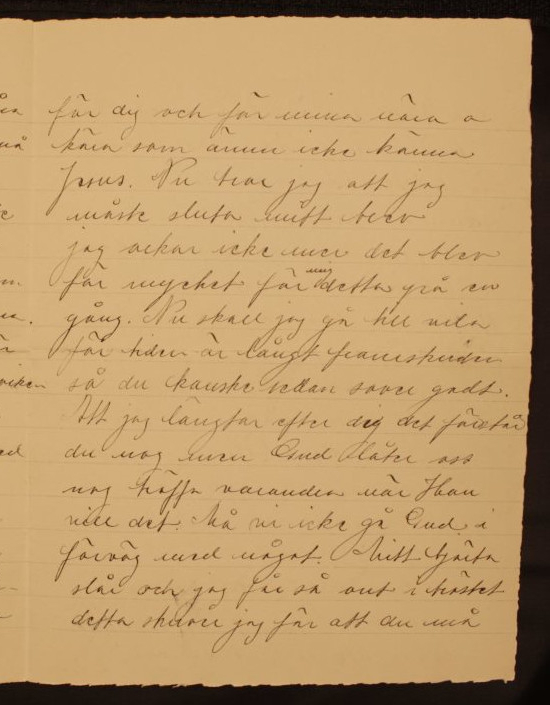 för dig och för mina nära o
kära som ännu icke känna
Jesus. Nu tror jag att jag
måste sluta mitt brev
jag orkar icke mer det blev
för mycket för mig detta på en
gång. Nu skall jag gå till vila
för tiden är långt framskriden
så du kanske redan sover godt.
Att jag längtar efter dig det förstår
du nog men Gud låter oss
nog träffa varandra när Han
vill det. Må vi icke gå Gud i
förväg med något. Mitt hjärta
slår och jag får så ont i bröstet
detta skriver jag för att du må